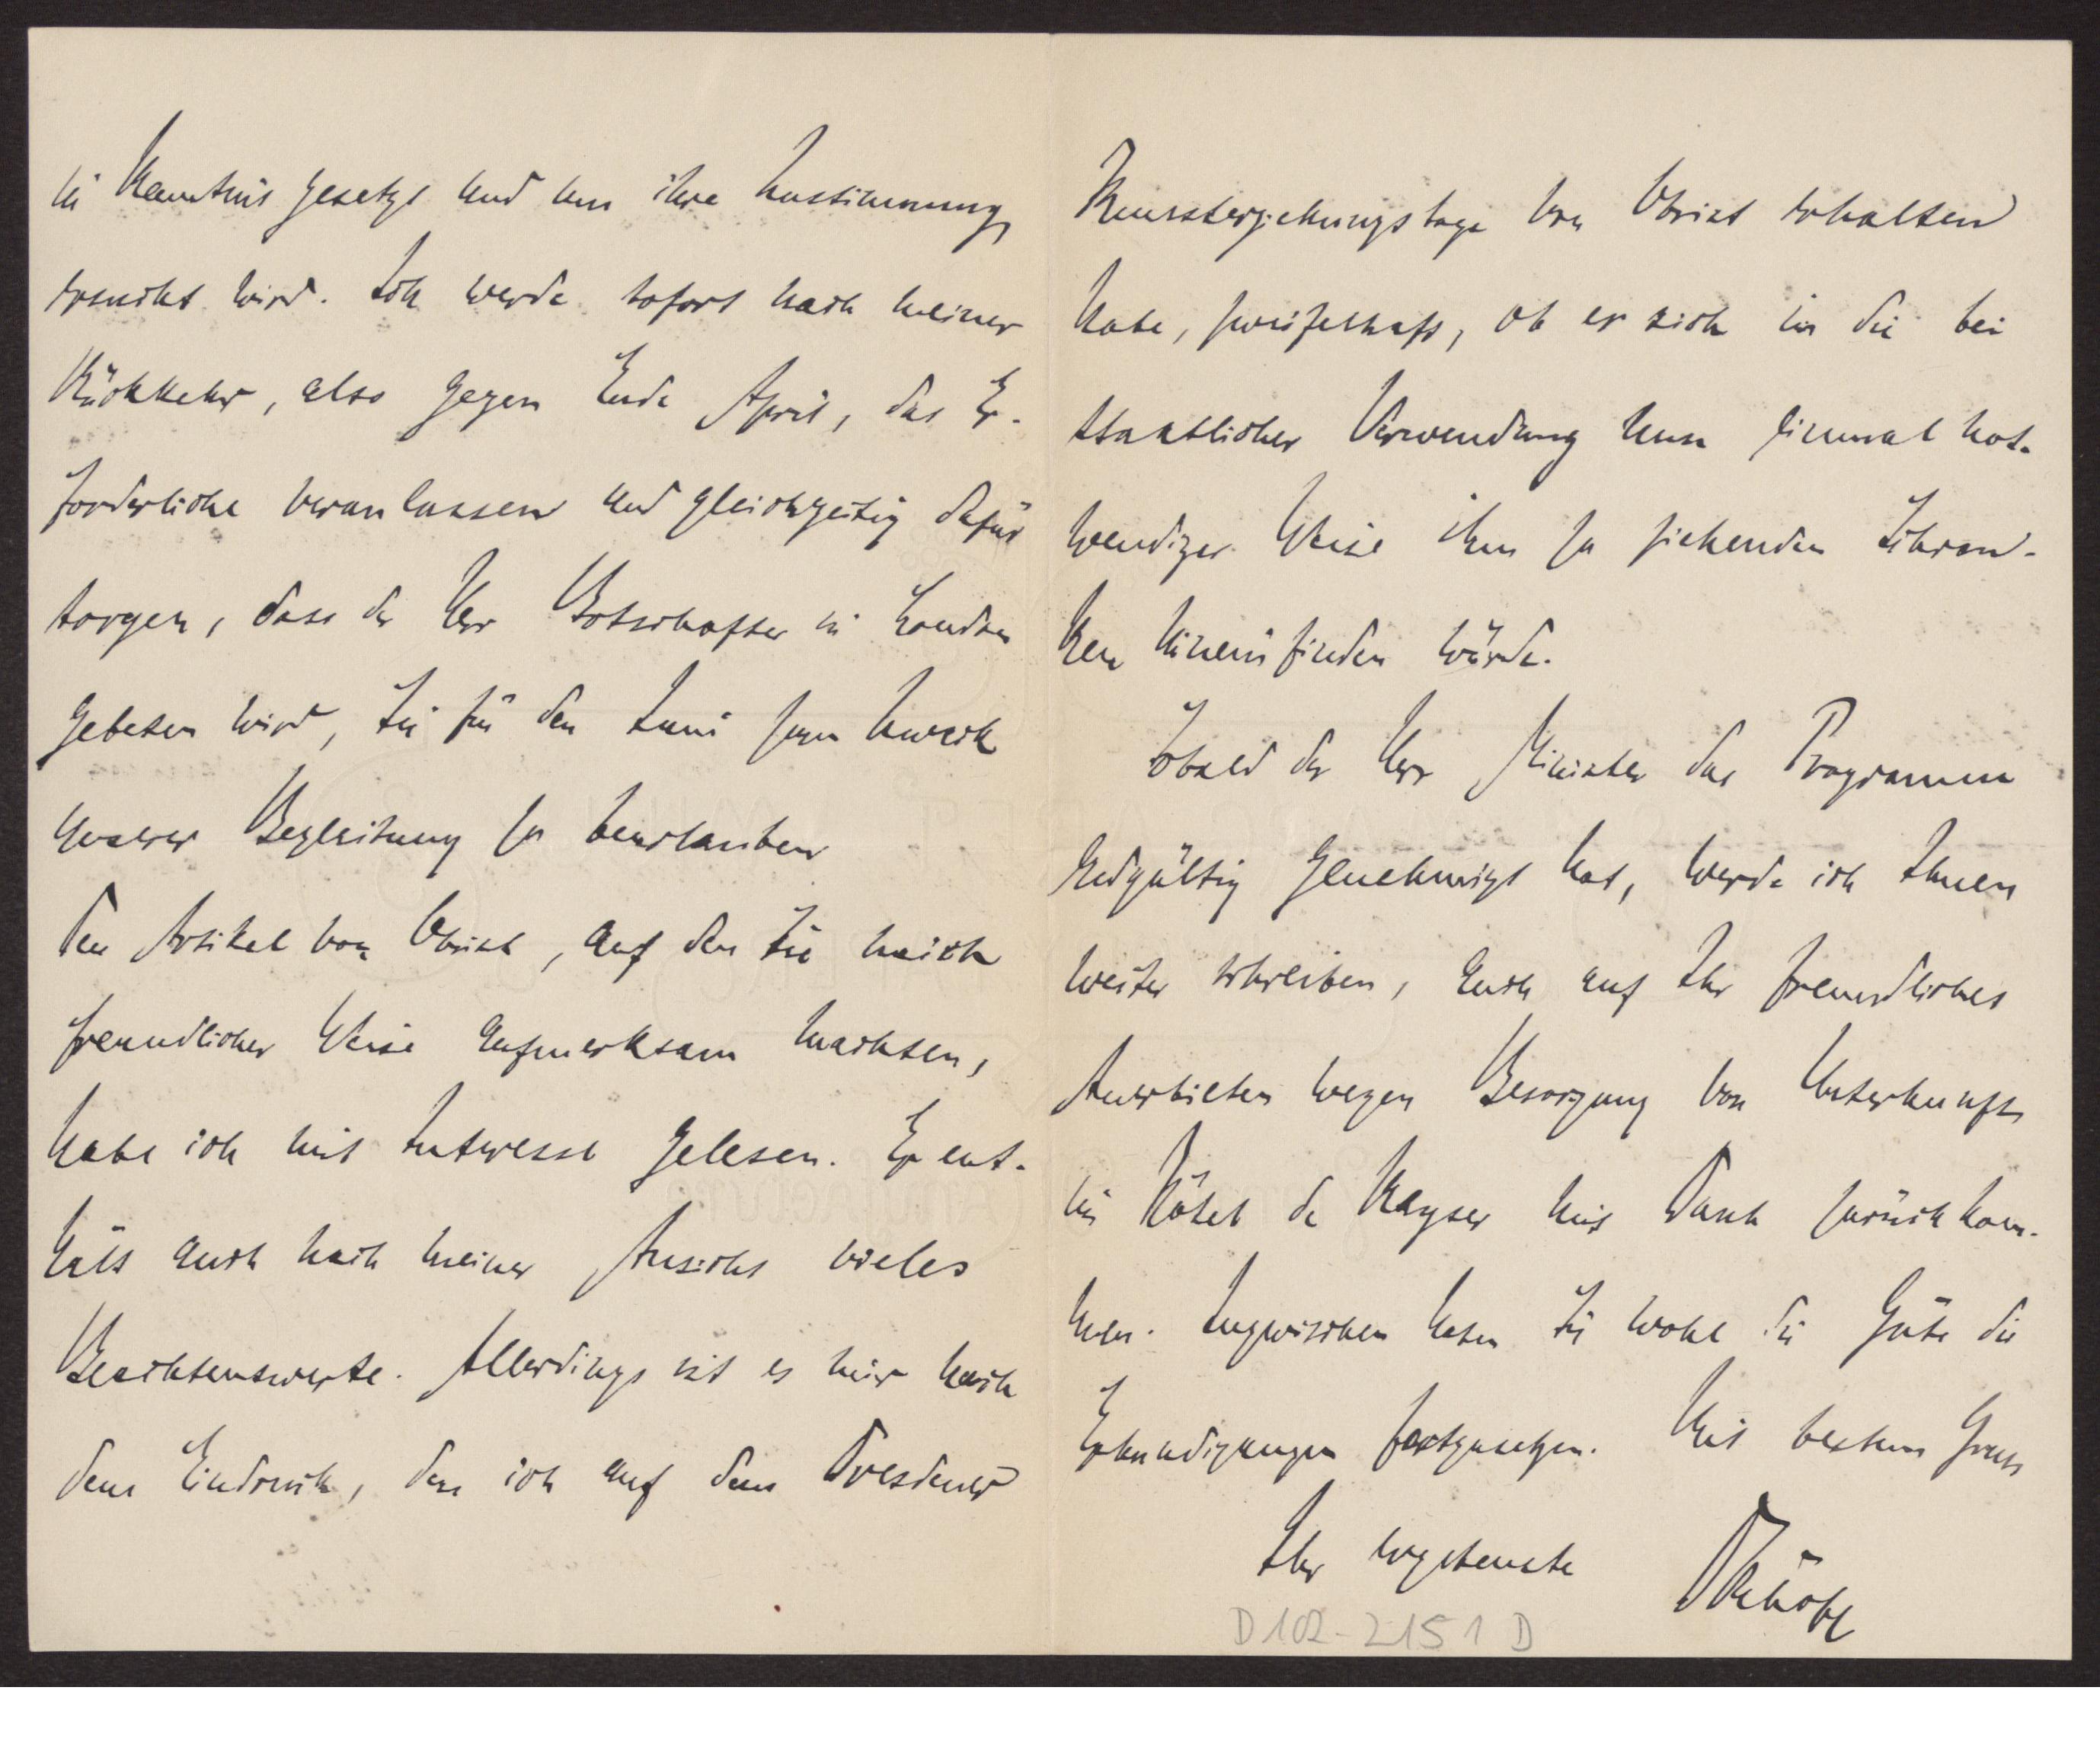 in Kenntnis gesetzt und um ihre Zustimmung
ersucht wird. Ich werde sofort nach meiner
Rückkehr, also gegen Ende April, das Er-
forderliche veranlassen und gleichzeitig dafür
sorgen, dass der Herr Botschafter in London
gebeten wird, Sie für den Juni zum Zweck
unserer Begleitung zu beurlauben
Den Artikel von Obrist, auf den Sie mich
freundlicher Weise aufmerksam machten,
habe ich mit Interesse gelesen. Er ent-
hält auch nach meiner Ansicht vieles
Beachtenswerte. Allerdings ist es mir nach
dem Eindruck, den ich auf dem Dresdener
Kunsterziehungstage von Obrist erhalten
habe, zweifelhaft, ob er sich in die bei
staatlicher Verwendung nun einmal not-
wendiger Weise ihm zu ziehenden Schran-
ken hineinfinden würde.
Sobald der Herr Minister das Programm
endgültig genehmigt hat, werde ich Ihnen
weiter schreiben, auch auf Ihr freundliches
Anerbieten wegen Besorgung von Unterkunft
im Hôtel de Keyser mit Dank zurückkom-
men. Inzwischen haben Sie wohl die Güte die
Erkundigungen fortzusetzen. Mit bestem Gruss
Ihr ergebenste
Dönhoff
D 102-2151 D